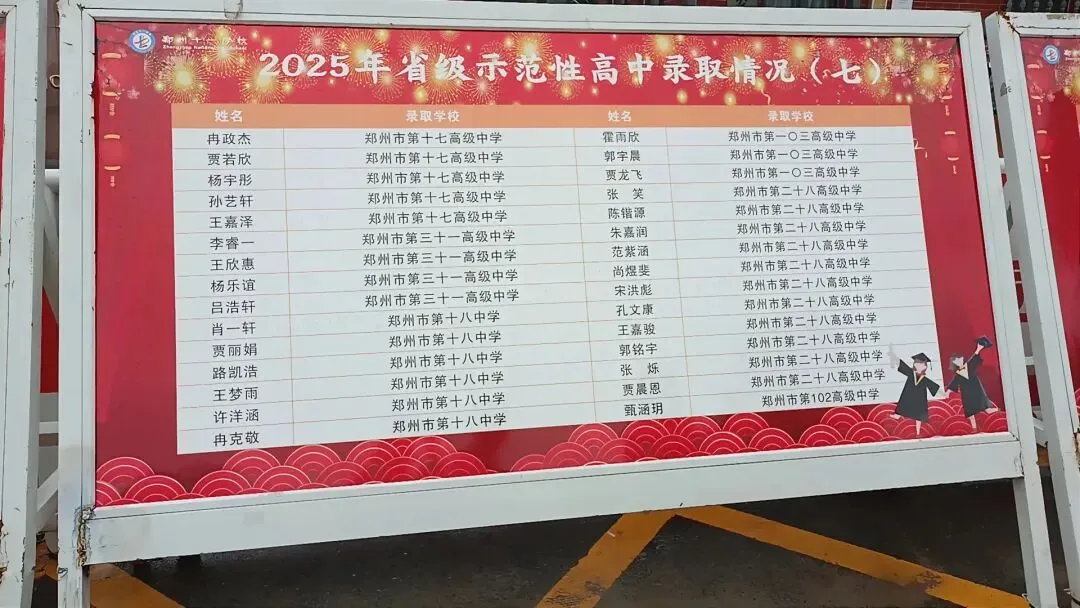 2025年省级示范性高中录取情况（七）
姓名 录取学校 姓名 录取学校
冉政杰 郑州市第十七高级中学 霍雨欣 郑州市第一〇三高级中学
贾若欣 郑州市第十七高级中学 郭宇晨 郑州市第一〇三高级中学
杨宇彤 郑州市第十七高级中学 贾龙飞 郑州市第一〇三高级中学
孙艺轩 郑州市第十七高级中学 张 笑 郑州市第二十八高级中学
王嘉泽 郑州市第十七高级中学 陈锴源 郑州市第二十八高级中学
李睿一 郑州市第三十一高级中学 朱嘉润 郑州市第二十八高级中学
王欣惠 郑州市第三十一高级中学 范紫涵 郑州市第二十八高级中学
杨乐谊 郑州市第三十一高级中学 尚煜斐 郑州市第二十八高级中学
吕浩轩 郑州市第三十一高级中学 宋洪彪 郑州市第二十八高级中学
肖一轩 郑州市第十八中学 孔文康 郑州市第二十八高级中学
贾丽娟 郑州市第十八中学 王嘉骏 郑州市第二十八高级中学
路凯浩 郑州市第十八中学 郭铭宇 郑州市第二十八高级中学
王梦雨 郑州市第十八中学 张 烁 郑州市第二十八高级中学
许洋涵 郑州市第十八中学 贾晨恩 郑州市第二十八高级中学
冉克敬 郑州市第十八中学 甄涵玥 郑州市第102高级中学